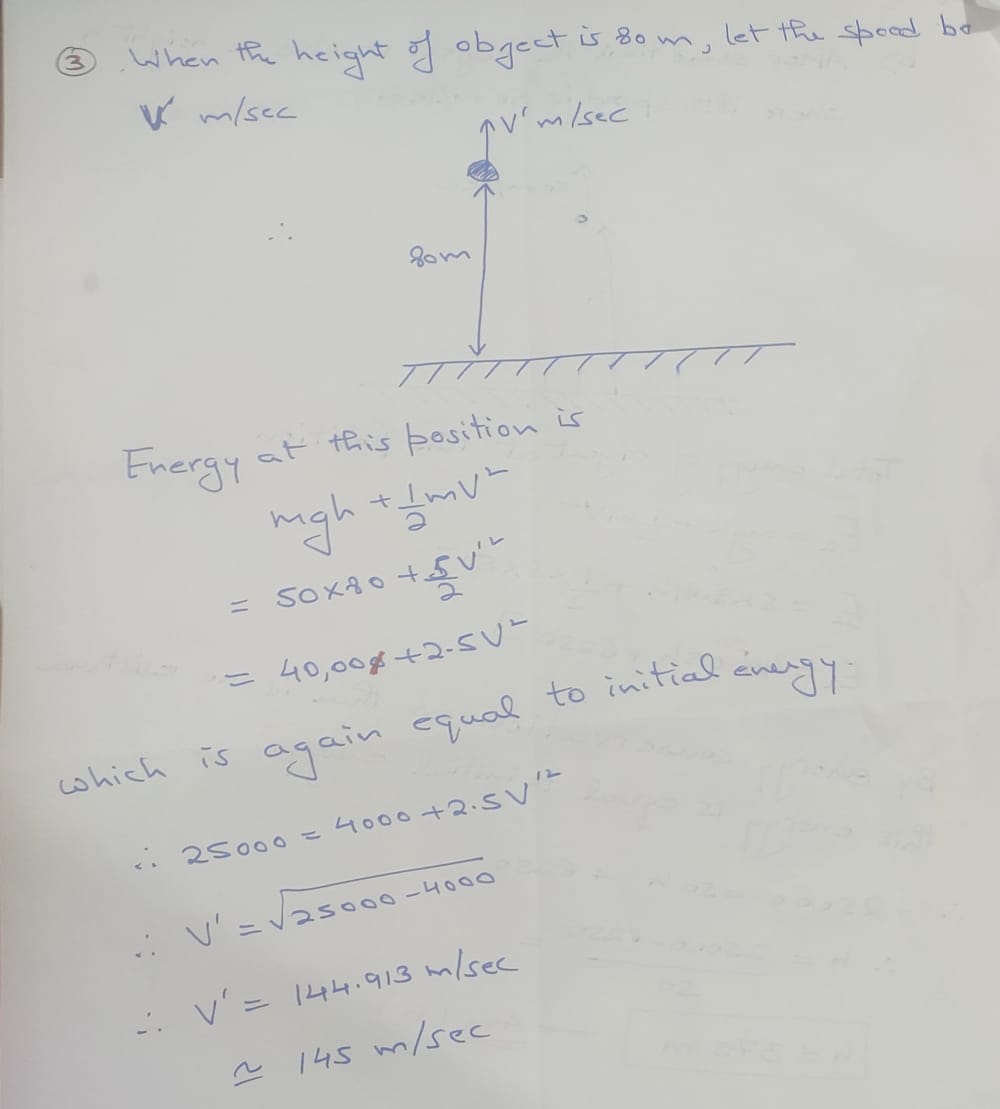 ③ When the height of object is 80 m, let the speed be
V' m/sec
V' m/sec
∴
80m
Energy at this position is
mgh + 1/2 mV²
= 50×80 + 5/2 V'²
= 40,00 + 2.5V²
which is again equal to initial energy
∴ 25000 = 4000 + 2.5V'²
∴ V' = √25000-4000
∴ V' = 144.913 m/sec
≃ 145 m/sec